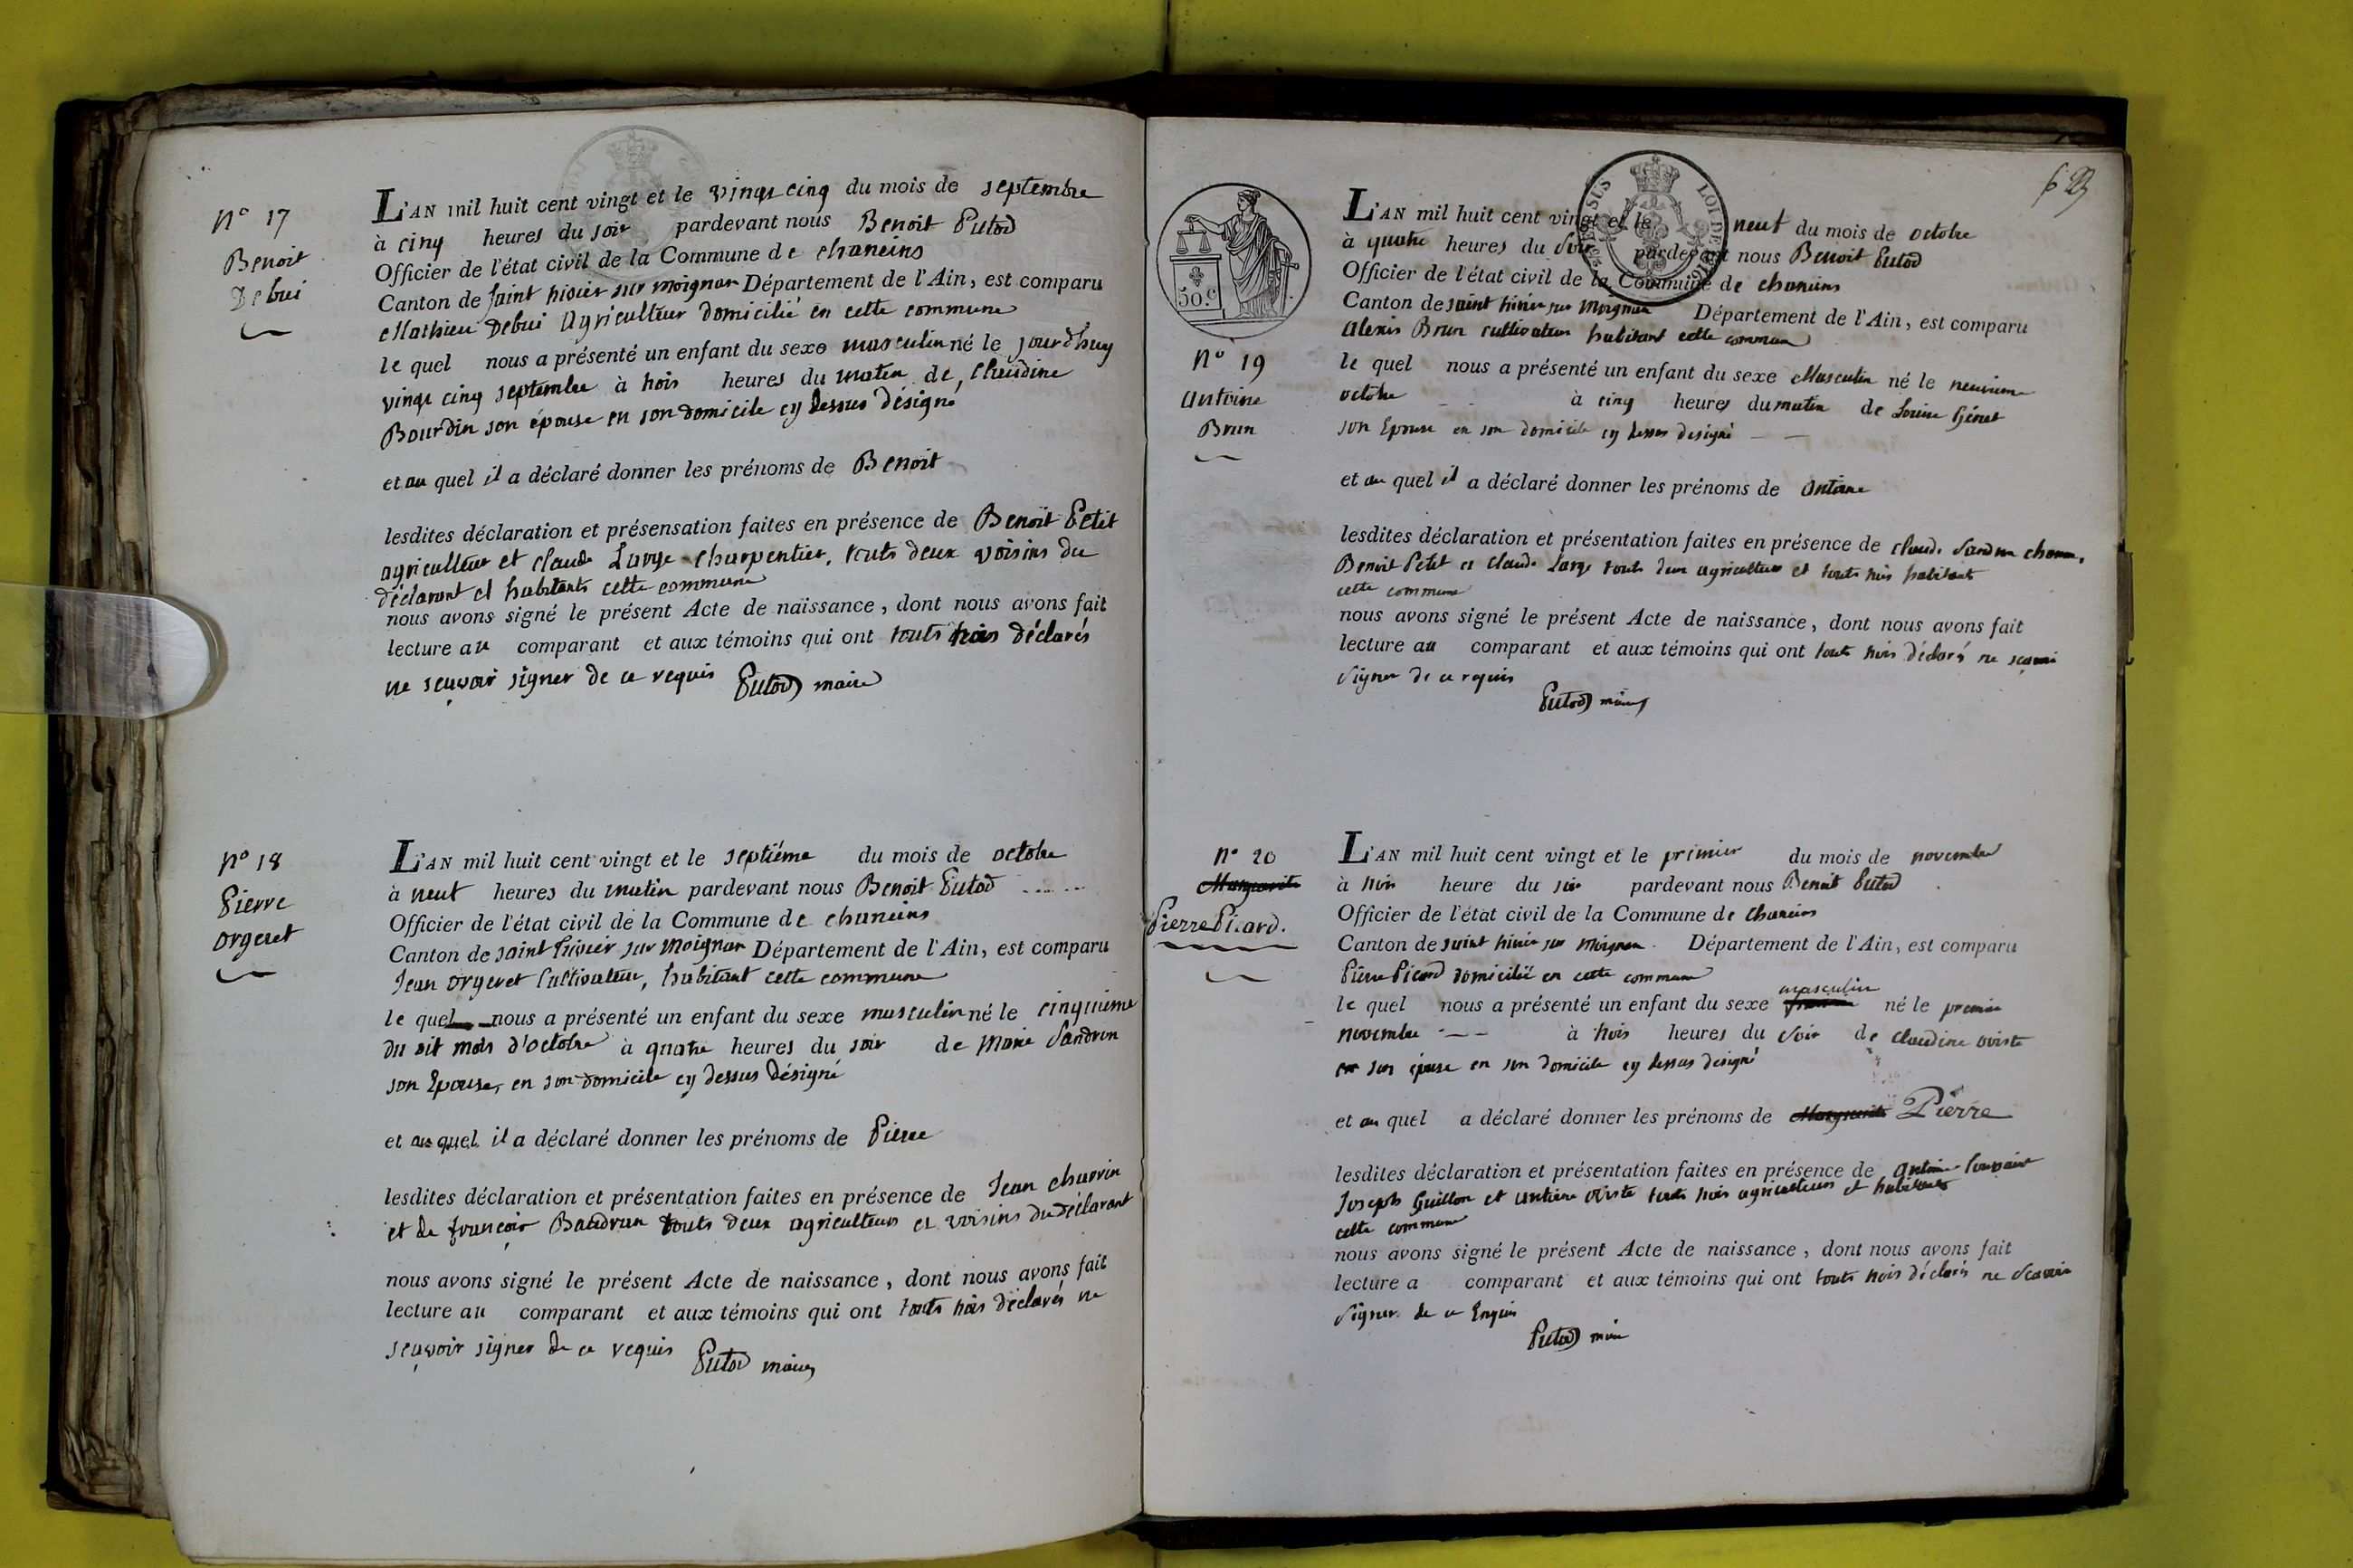 N° 17
Benoit
Debui
L'AN mil huit cent vingt et le vingt cinq du mois de septembre
à cinq heures du soir pardevant nous Benoit Putod
Officier de l'état civil de la Commune de chaneins
Canton de saint trivier sur moignan Département de l'Ain, est comparu
Mathieu Debui agriculteur domicilié en cette commune
le quel nous a présenté un enfant du sexe masculin né le jourdhuy
vingt cinq septembre à trois heures du matin de Claudine
Bourdin son épouse en son domicile cy dessus désigné
et au quel il a déclaré donner les prénoms de Benoit
lesdites déclaration et présensation faites en présence de Benoit Petit
agriculteur et claude Large charpentier, touts deux voisins du
déclarant et habitants cette commune
nous avons signé le présent Acte de naissance, dont nous avons fait
lecture au comparant et aux témoins qui ont touts trois déclarés
ne sçavoir signer de ce requis Putod maire
N° 18
Pierre
orgeret
L'AN mil huit cent vingt et le septiéme du mois de octobre
à neuf heures du matin pardevant nous Benoit Putod
Officier de l'état civil de la Commune de chaneins
Canton de saint trivier sur moignan Département de l'Ain, est comparu
Jean orgeret Cultivateur, habitant cette commune
le quel nous a présenté un enfant du sexe masculin né le cinquieme
du dit mois d'octobre à quatre heures du soir de Marie Sandron
son Epouse, en son domicile cy dessus désigné
et au quel il a déclaré donner les prénoms de Pierre
lesdites déclaration et présentation faites en présence de Jean charvin
et de françois Baudran touts deux agriculteurs et voisins du déclarant
nous avons signé le présent Acte de naissance, dont nous avons fait
lecture au comparant et aux témoins qui ont touts trois déclarés ne
sçavoir signer de ce requis Putod maire
LOI DE
50.c
N° 19
antoine
Brun
L'AN mil huit cent vingt et le neuf du mois de octobre
à quatre heures du soir pardevant nous Benoit Putod
Officier de l'état civil de la Commune de chaneins
Canton de saint trivier sur moignan Département de l'Ain, est comparu
alexis Brun cultivateur habitant cette commune
le quel nous a présenté un enfant du sexe Masculin né le neuvieme
octobre à cinq heures du matin de Louise
son Epouse en son domicile cy dessus designé
et au quel il a déclaré donner les prénoms de antoine
lesdites déclaration et présentation faites en présence de claude
Benoit Petit et claude Large touts deux agriculteurs et touts trois habitants
cette commune
nous avons signé le présent Acte de naissance, dont nous avons fait
lecture au comparant et aux témoins qui ont touts trois déclarés ne sçavoir
signer de ce requis
Putod maire
N° 20
Marguerite
Pierre Picard.
L'AN mil huit cent vingt et le primier du mois de novembre
à trois heure du soir pardevant nous Benoit Putod
Officier de l'état civil de la Commune de chaneins
Canton de saint trivier sur moignan. Département de l'Ain, est comparu
Pierre Picard domicilié en cette commune
masculin
le quel nous a présenté un enfant du sexe né le premier
novembre à trois heures du soir de claudine oviste
son épouse en son domicile cy dessus désigné
et au quel a déclaré donner les prénoms de Marguerite Pierre
lesdites déclaration et présentation faites en présence de antoine
Joseph Guillon et antoine oviste touts trois agriculteurs et habitants
cette commune
nous avons signé le présent Acte de naissance, dont nous avons fait
lecture a comparant et aux témoins qui ont touts trois déclarés ne scavoir
signer de ce
Putod maire